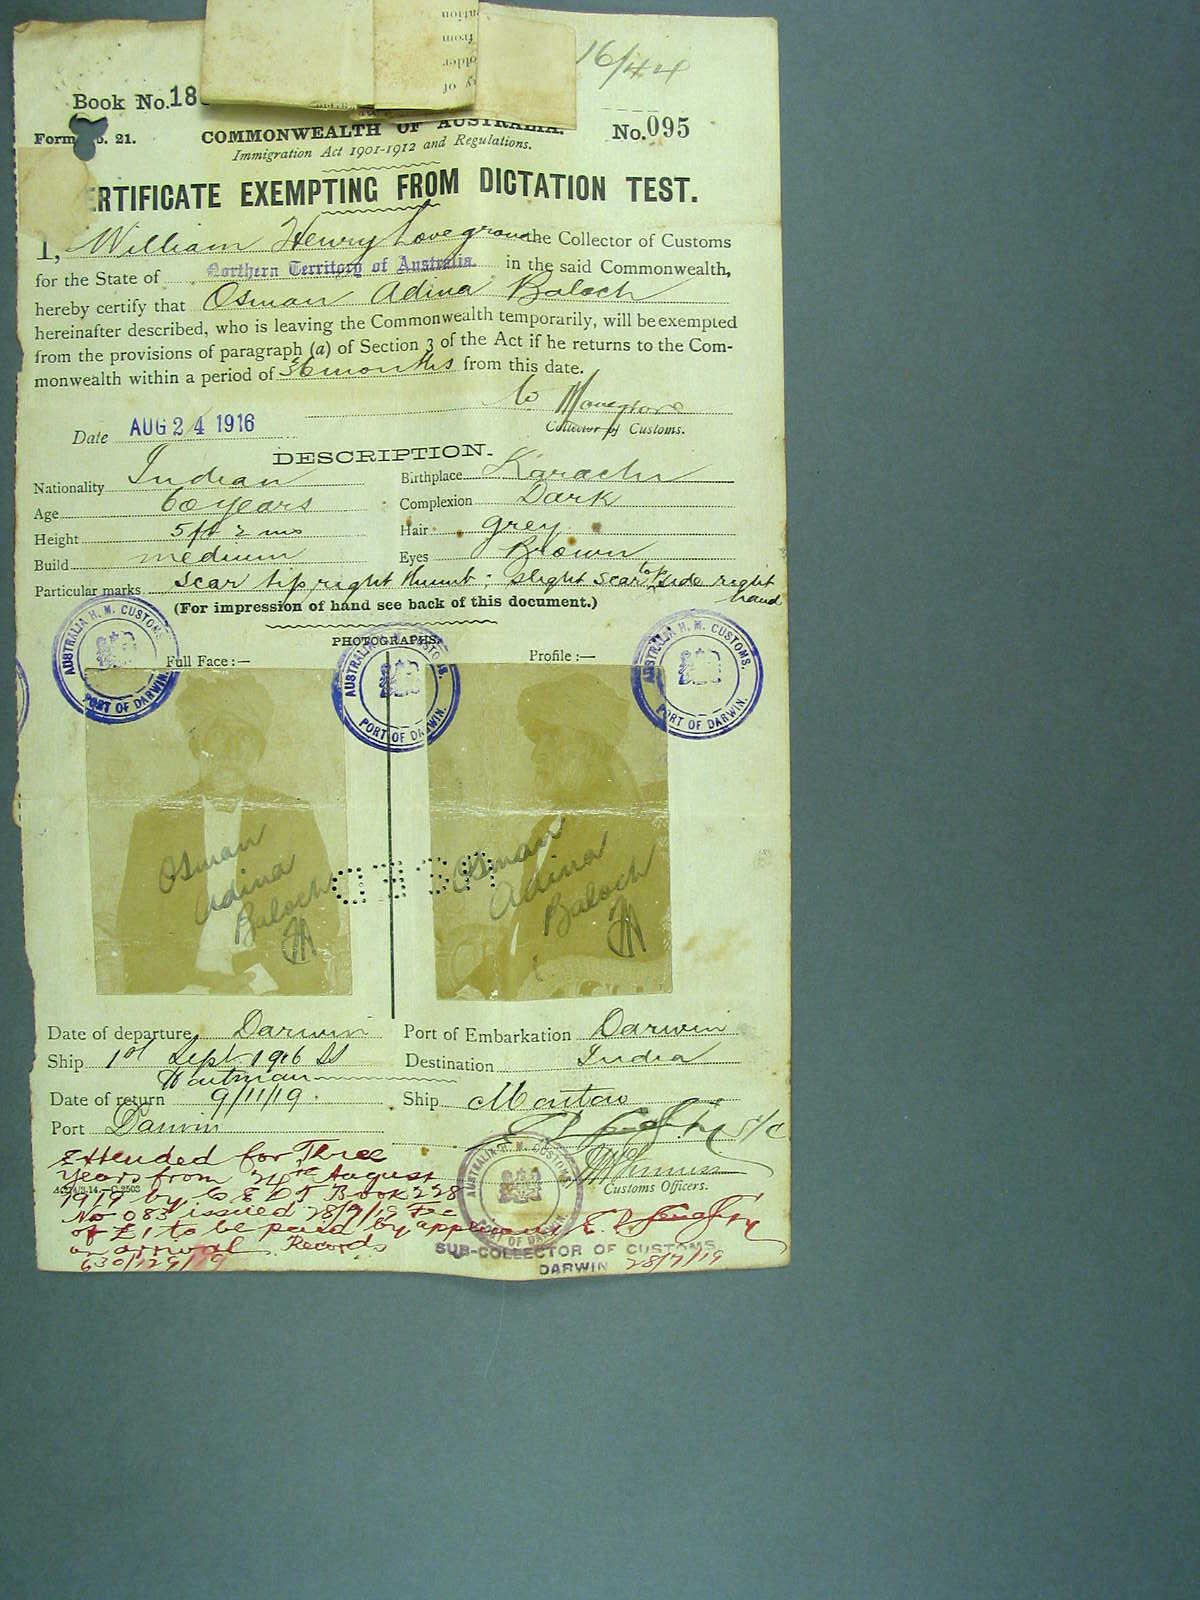 16/44
Book No. 18
Form No. 21.
COMMONWEALTH OF AUSTRALIA.
No. 095
Immigration Act 1901-1912 and Regulations.
ERTIFICATE EXEMPTING FROM DICTATION TEST.
I, William Henry Lovegrove the Collector of Customs
for the State of Northern Territory of Australia. in the said Commonwealth,
hereby certify that Osman Adina Baloch
hereinafter described, who is leaving the Commonwealth temporarily, will be exempted
from the provisions of paragraph (a) of Section 3 of the Act if he returns to the Com-
monwealth within a period of 36 months from this date.
Date AUG 24 1916
Collector of Customs.
DESCRIPTION.
Nationality Indian
Birthplace Karachi
Age 60 years
Complexion Dark
Height 5 ft 2 ins
Hair grey
Build medium
Eyes Brown
Particular marks scar tip right thumb: slight scar side right
hand
(For impression of hand see back of this document.)
PHOTOGRAPHS.
Full Face:—
Profile:—
AUSTRALIA H. M. CUSTOMS.
PORT OF DARWIN.
AUSTRALIA H. M. CUSTOMS.
PORT OF DARWIN.
AUSTRALIA H. M. CUSTOMS.
PORT OF DARWIN.
Osman
Adina
Baloch
Osman
Adina
Baloch
Date of departure Darwin
Port of Embarkation Darwin
Ship 1st Sept 1916 SS
Houtman
Destination India
Date of return 9/11/19.
Ship Mataram
Port Darwin
S/C
Customs Officers.
Extended for Three
years from 24th August
1919 by C E D T Book 228
No 083 issued 28/7/19 Fee
of £1 to be paid by applicant
on arrival. Records
630/129/19
AUSTRALIA H. M. CUSTOMS.
PORT OF DARWIN.
SUB-COLLECTOR OF CUSTOMS
DARWIN 28/7/19